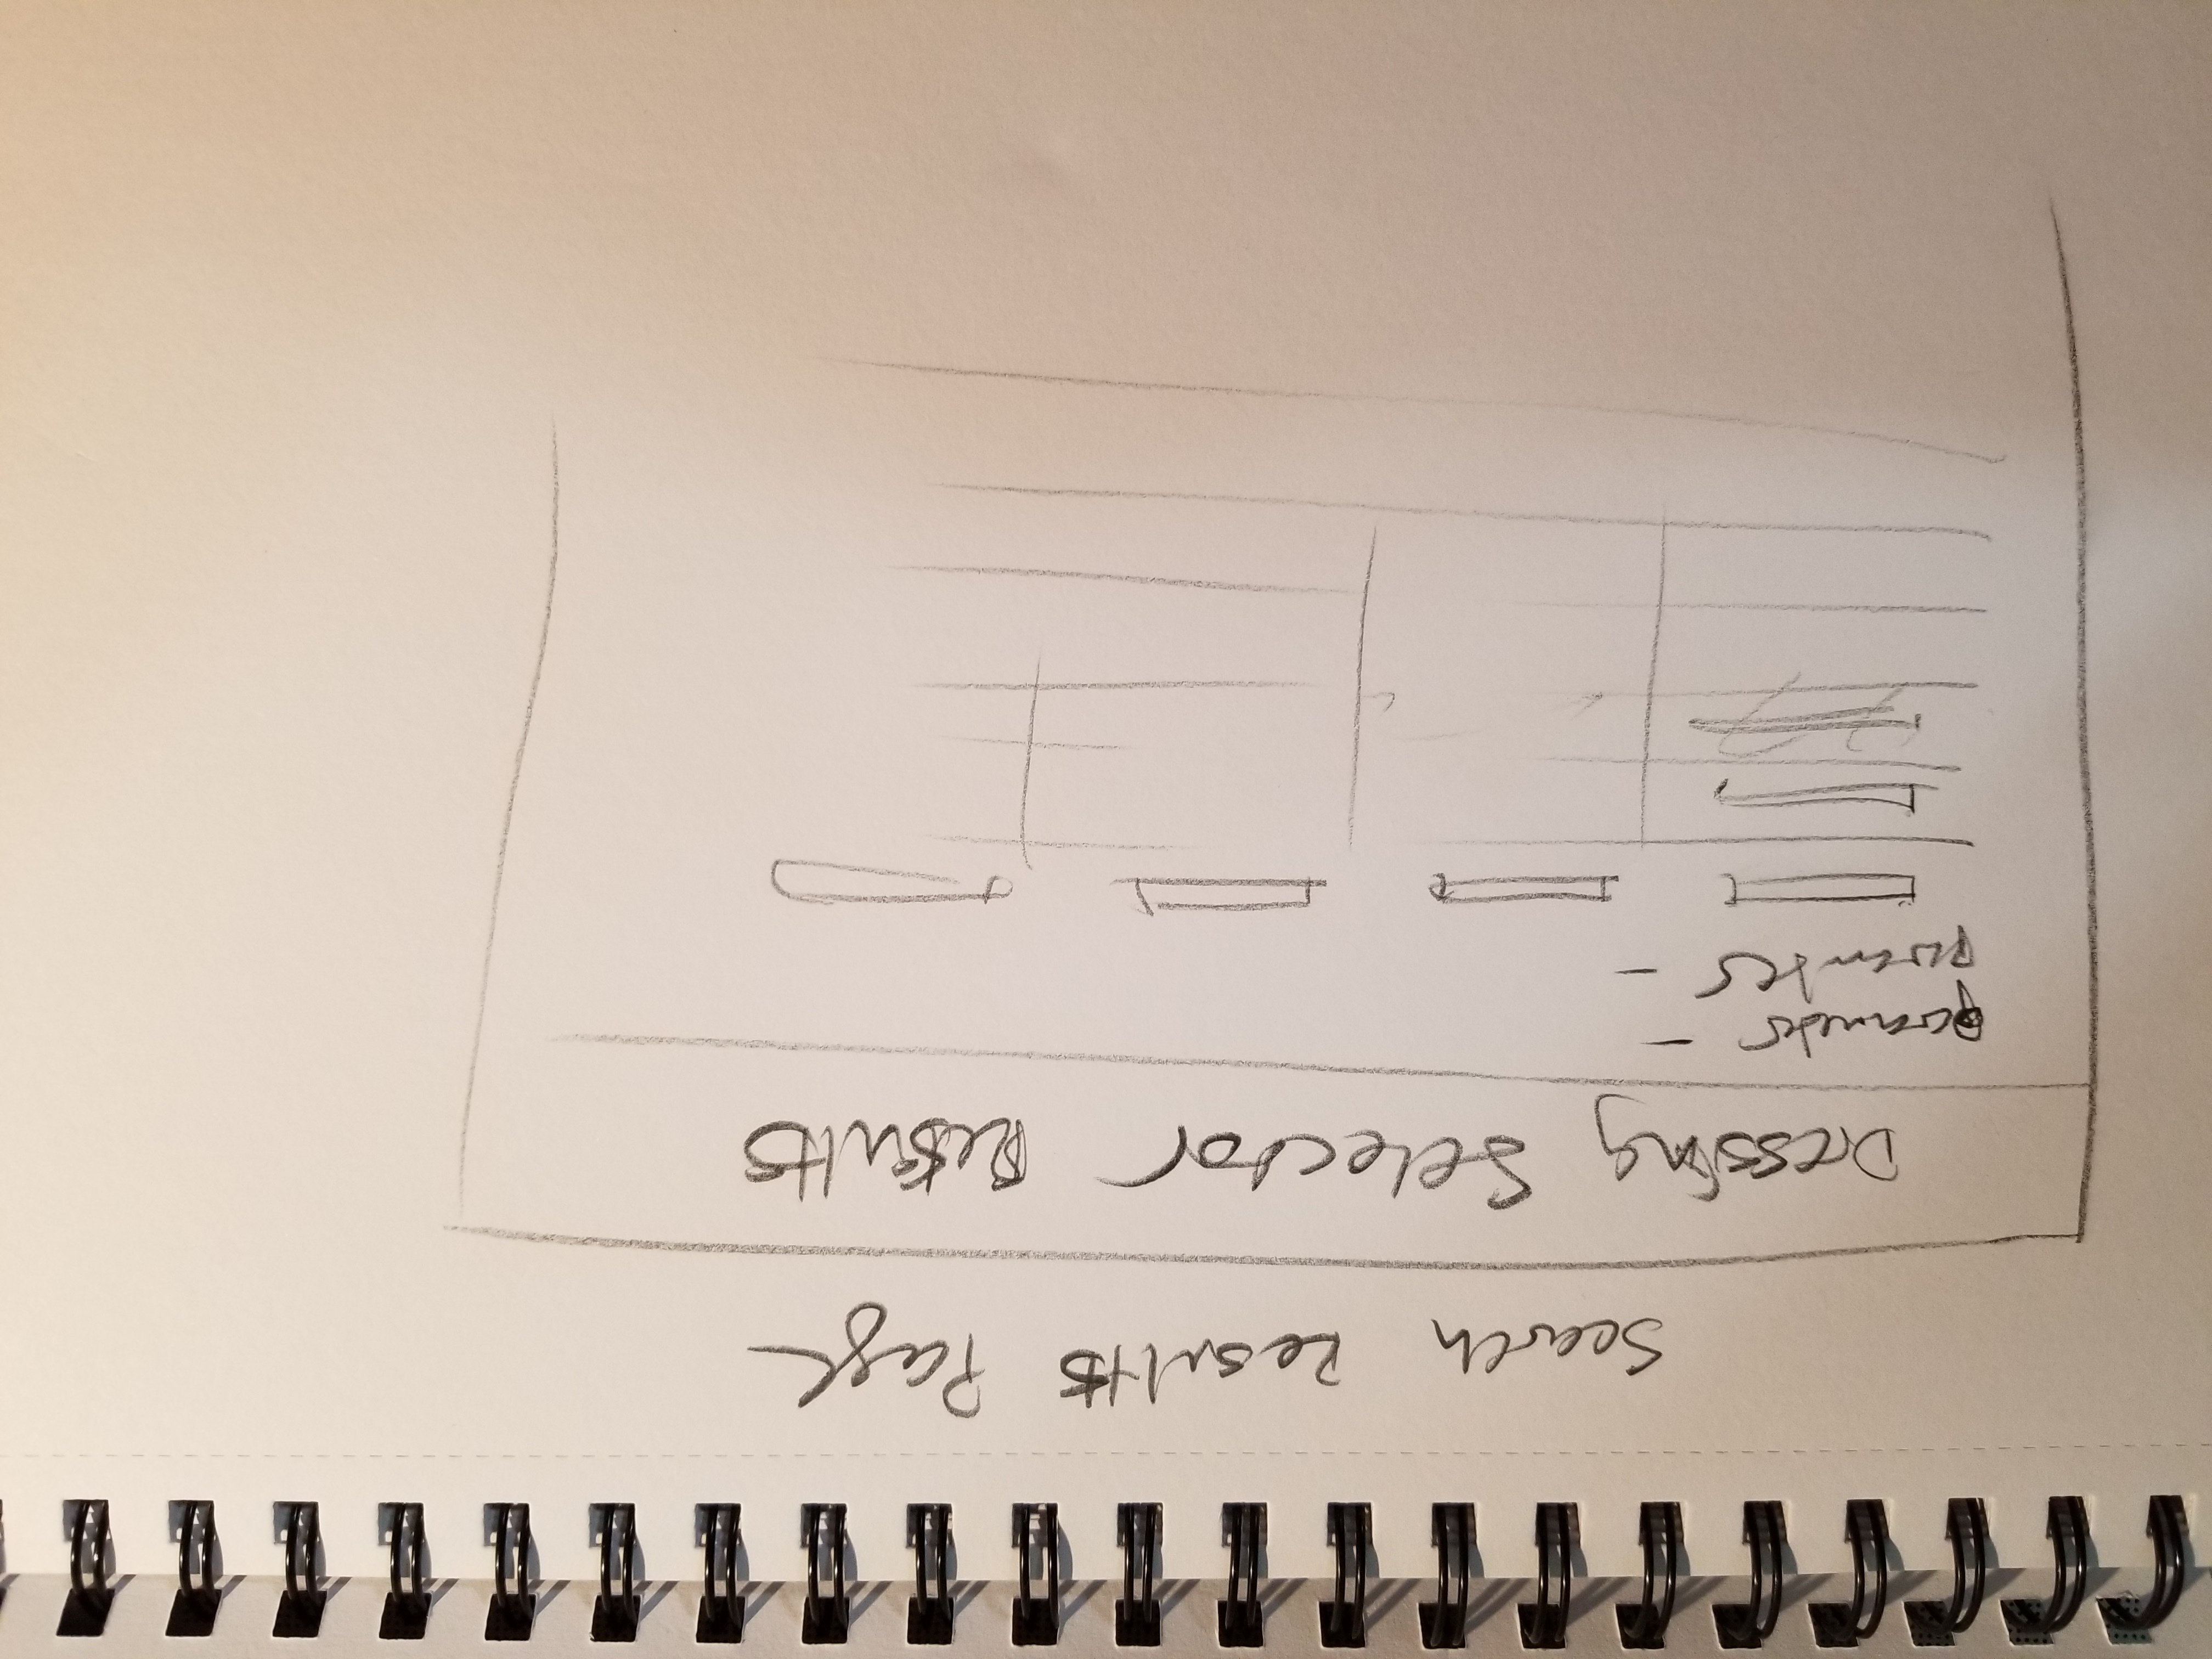 Search Results Page
Dressing Selector Results
parameter -
paramter -